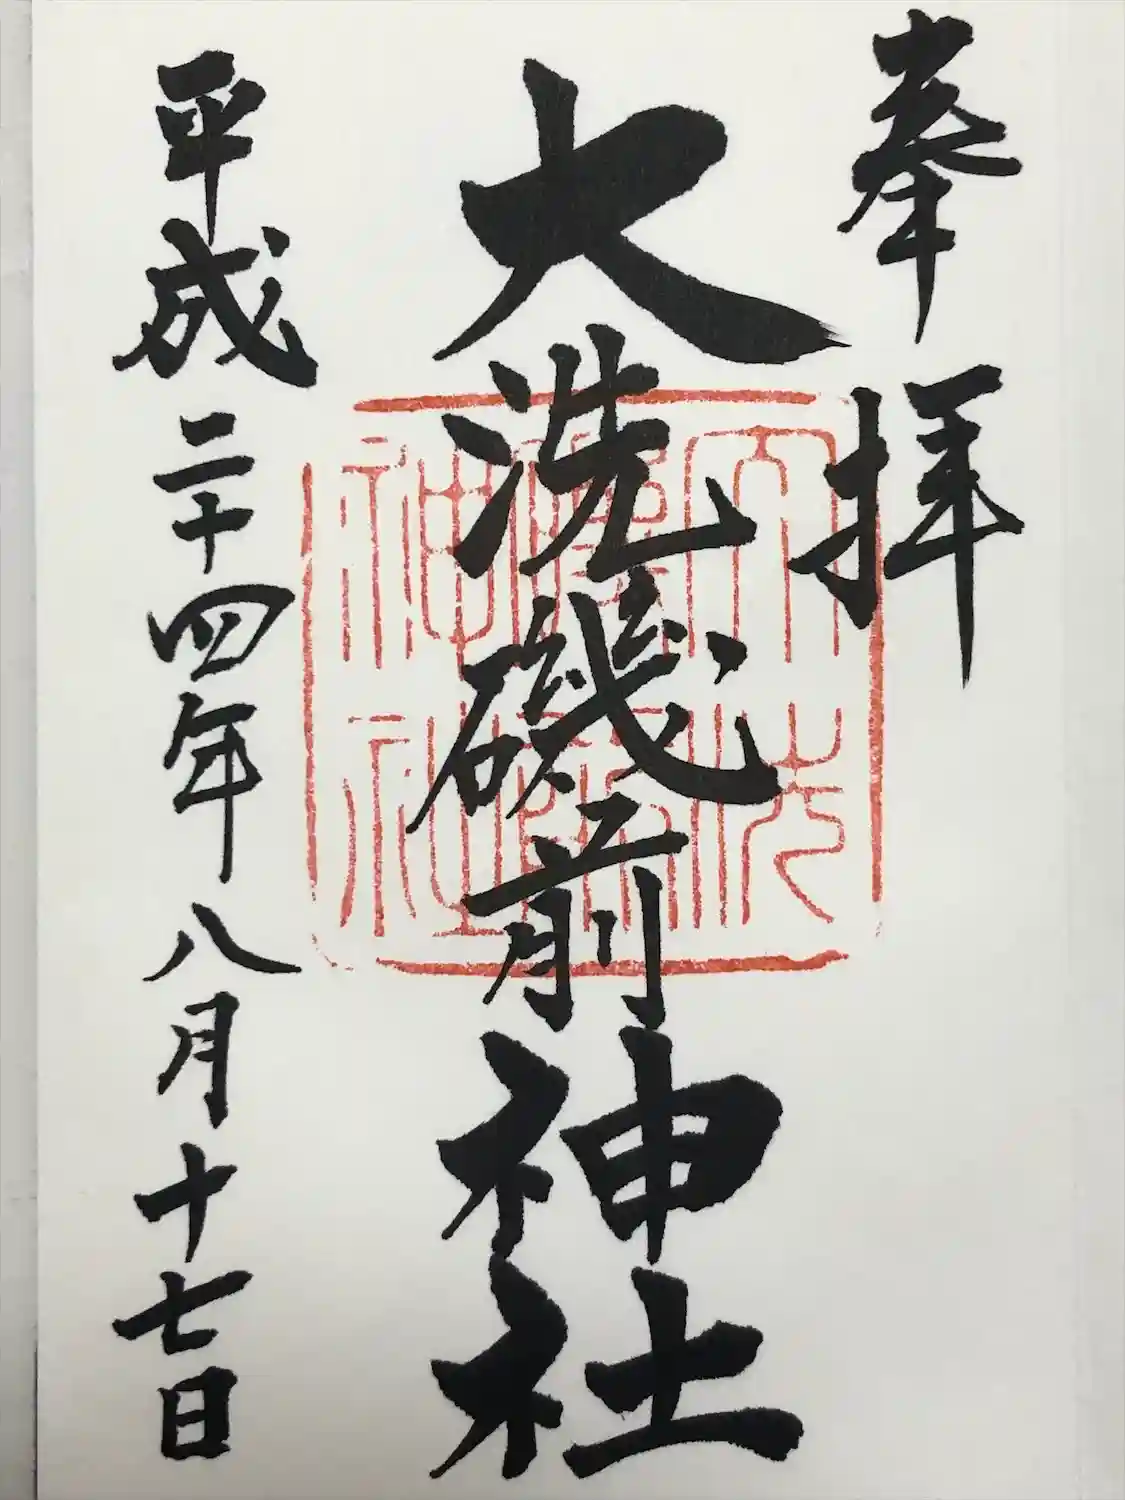 奉拝
大洗磯前神社
大洗磯前神社
平成二十四年八月十七日